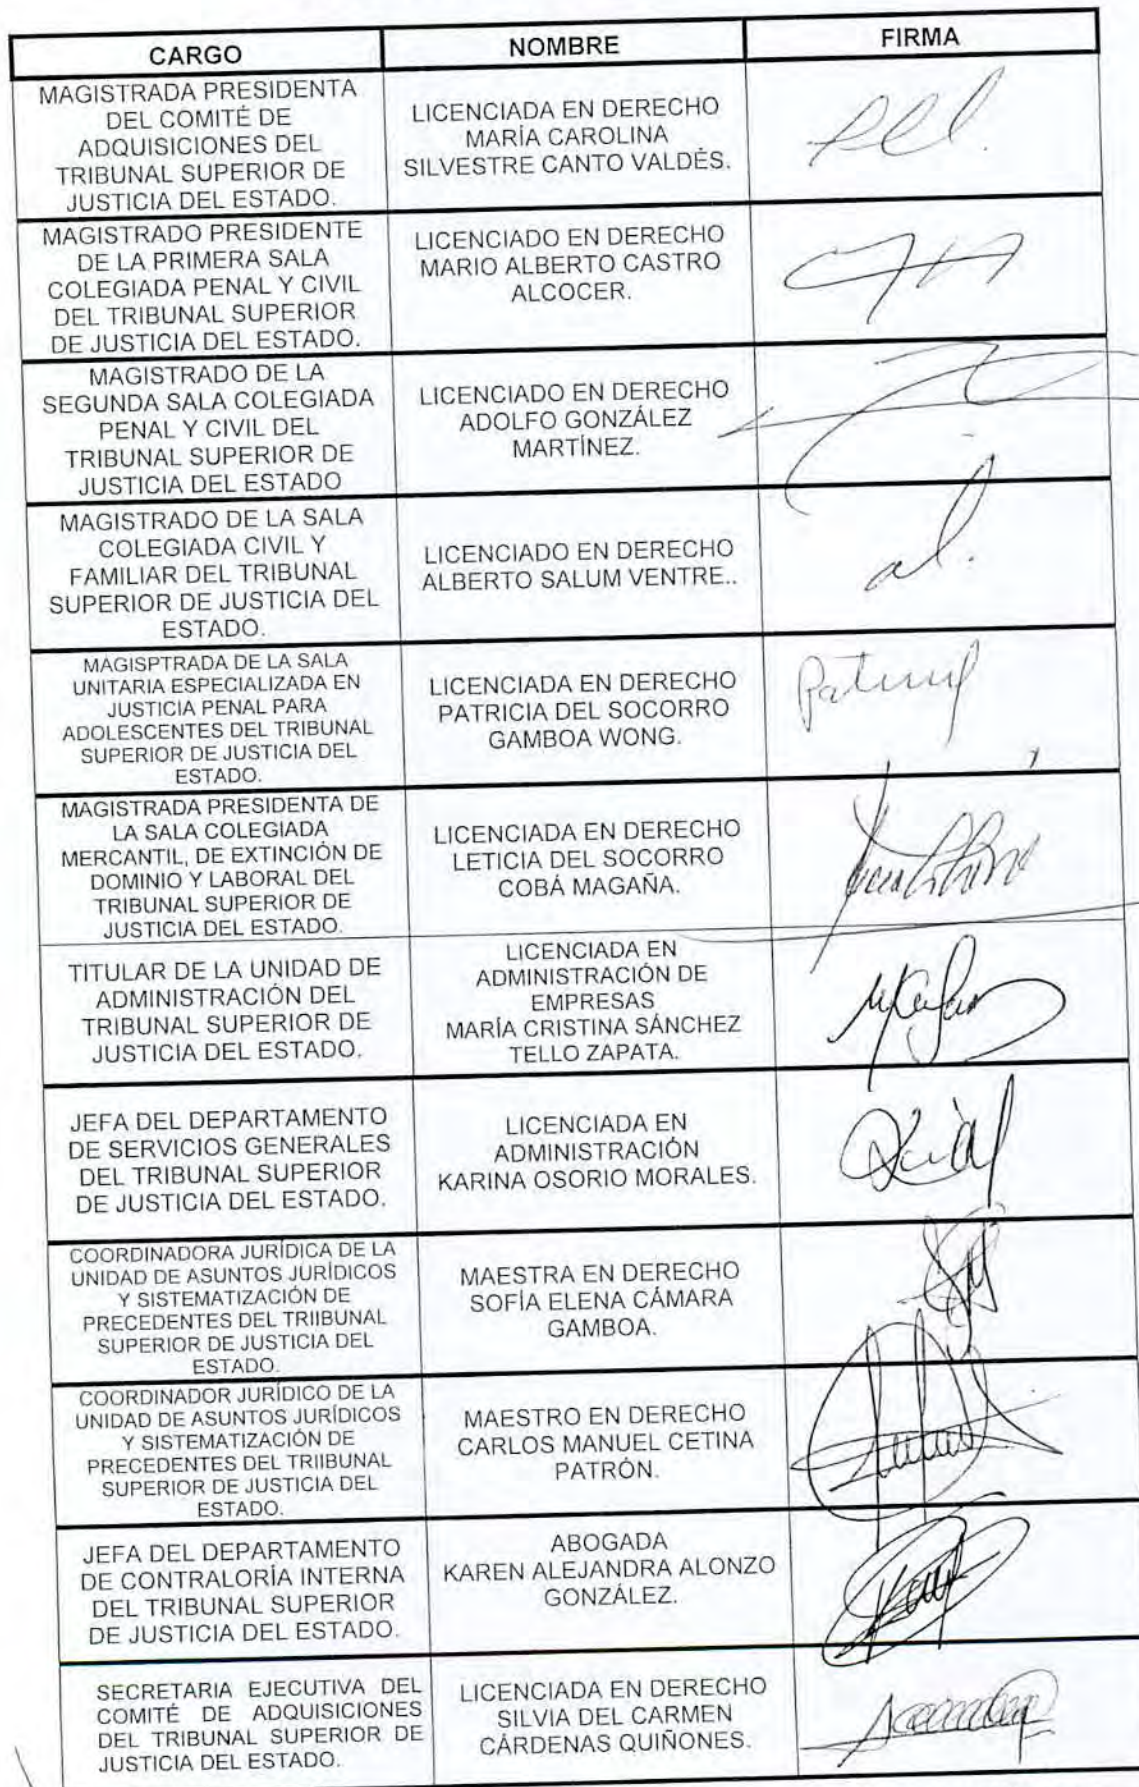 CARGO NOMBRE FIRMA
MAGISTRADA PRESIDENTA
DEL COMITÉ DE
ADQUISICIONES DEL
TRIBUNAL SUPERIOR DE
JUSTICIA DEL ESTADO.
LICENCIADA EN DERECHO
MARÍA CAROLINA
SILVESTRE CANTO VALDÉS.
MAGISTRADO PRESIDENTE
DE LA PRIMERA SALA
COLEGIADA PENAL Y CIVIL
DEL TRIBUNAL SUPERIOR
DE JUSTICIA DEL ESTADO.
LICENCIADO EN DERECHO
MARIO ALBERTO CASTRO
ALCOCER.
MAGISTRADO DE LA
SEGUNDA SALA COLEGIADA
PENAL Y CIVIL DEL
TRIBUNAL SUPERIOR DE
JUSTICIA DEL ESTADO
LICENCIADO EN DERECHO
ADOLFO GONZÁLEZ
MARTÍNEZ.
MAGISTRADO DE LA SALA
COLEGIADA CIVIL Y
FAMILIAR DEL TRIBUNAL
SUPERIOR DE JUSTICIA DEL
ESTADO.
LICENCIADO EN DERECHO
ALBERTO SALUM VENTRE..
MAGISPTRADA DE LA SALA
UNITARIA ESPECIALIZADA EN
JUSTICIA PENAL PARA
ADOLESCENTES DEL TRIBUNAL
SUPERIOR DE JUSTICIA DEL
ESTADO.
LICENCIADA EN DERECHO
PATRICIA DEL SOCORRO
GAMBOA WONG.
MAGISTRADA PRESIDENTA DE
LA SALA COLEGIADA
MERCANTIL, DE EXTINCIÓN DE
DOMINIO Y LABORAL DEL
TRIBUNAL SUPERIOR DE
JUSTICIA DEL ESTADO.
LICENCIADA EN DERECHO
LETICIA DEL SOCORRO
COBÁ MAGAÑA.
TITULAR DE LA UNIDAD DE
ADMINISTRACIÓN DEL
TRIBUNAL SUPERIOR DE
JUSTICIA DEL ESTADO.
LICENCIADA EN
ADMINISTRACIÓN DE
EMPRESAS
MARÍA CRISTINA SÁNCHEZ
TELLO ZAPATA.
JEFA DEL DEPARTAMENTO
DE SERVICIOS GENERALES
DEL TRIBUNAL SUPERIOR
DE JUSTICIA DEL ESTADO.
LICENCIADA EN
ADMINISTRACIÓN
KARINA OSORIO MORALES.
COORDINADORA JURÍDICA DE LA
UNIDAD DE ASUNTOS JURÍDICOS
Y SISTEMATIZACIÓN DE
PRECEDENTES DEL TRIIBUNAL
SUPERIOR DE JUSTICIA DEL
ESTADO.
MAESTRA EN DERECHO
SOFÍA ELENA CÁMARA
GAMBOA.
COORDINADOR JURÍDICO DE LA
UNIDAD DE ASUNTOS JURÍDICOS
Y SISTEMATIZACIÓN DE
PRECEDENTES DEL TRIIBUNAL
SUPERIOR DE JUSTICIA DEL
ESTADO.
MAESTRO EN DERECHO
CARLOS MANUEL CETINA
PATRÓN.
JEFA DEL DEPARTAMENTO
DE CONTRALORÍA INTERNA
DEL TRIBUNAL SUPERIOR
DE JUSTICIA DEL ESTADO.
ABOGADA
KAREN ALEJANDRA ALONZO
GONZÁLEZ.
SECRETARIA EJECUTIVA DEL
COMITÉ DE ADQUISICIONES
DEL TRIBUNAL SUPERIOR DE
JUSTICIA DEL ESTADO.
LICENCIADA EN DERECHO
SILVIA DEL CARMEN
CÁRDENAS QUIÑONES.